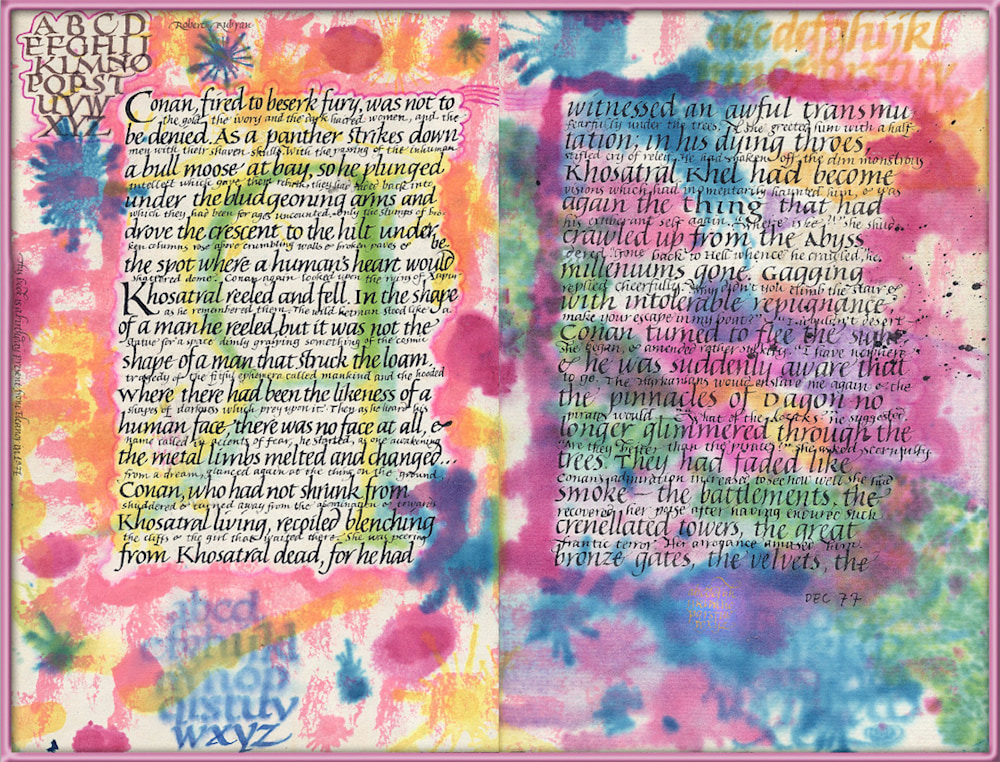 A B C D
E F G H I J
K L M N O
P Q R S T
U V W
X Y Z
Conan, fired to beserk fury, was not to
the gold, the ivory and the dark haired women, and the
be denied. As a panther strikes down
men with their shaven skulls. With the passing of the inhuman
a bull moose at bay, so he plunged
intellect which gave them rebirth, they had back into
under the bludgeoning arms and
which they had been for ages uncounted. Only the stumps of bro-
drove the crescent to the hilt under
ken columns rose above crumbling walls & broken paves &
be
the spot where a human's heart would
shattered dome. Conan again looked upon the ruins of Xapur
Khosatral reeled and fell. In the shape
as he remembered them. The wild hetman stood like a
of a man he reeled, but it was not the
statue for a space dimly grasping something of the cosmic
shape of a man that struck the loam,
tragedy of the fitful ephemera called mankind and the hooded
where there had been the likeness of a
shapes of darkness which prey upon it. They as he heard his
human face there was no face at all, &
name called in accents of fear, he started, as one awakening
the metal limbs melted and changed...
from a dream, glanced again at the thing on the ground,
Conan, who had not shrunk from
shuddered & turned away from the abomination & towards
Khosatral living, recoiled blenching
the cliffs & the girl that waited there. She was peering
from Khosatral dead, for he had
abcd
mnop
qrstuv
wxyz
abcdefghijkl
witnessed an awful transmu
fearfully under the trees. & she greeted him with a half-
tation; in his dying throes,
stifled cry of relief. He had shaken off the dim monstrous
Khosatral Khel had become
visions which had momentarily haunted him, & was
again the thing that had
his exuberant self again. "Where is he?" she shud-
crawled up from the Abyss
dered. "Gone back to Hell whence he crawled," he
milleniums gone. Gagging
replied cheerfully. "Why didn't you climb the stair &
with intolerable repugnance,
make your escape in my boat?" "I wouldn't desert-"
Conan turned to flee the sight
She began, & amended rather sulkily. "I have nowhere
& he was suddenly aware that
to go. The Hyrkanians would enslave me again & the
the pinnacles of Dagon no
pirates would - "What of the kozaks?" he suggested
longer glimmered through the
"Are they better than the pirates?" she asked scornfully.
trees. They had faded like
Conan's admiration increased to see how well she had
smoke — the battlements, the
recovered her poise after having endured such
crenellated towers, the great
frantic terror. Her arrogance amused him.
bronze gates, the velvets, the
DEC 77